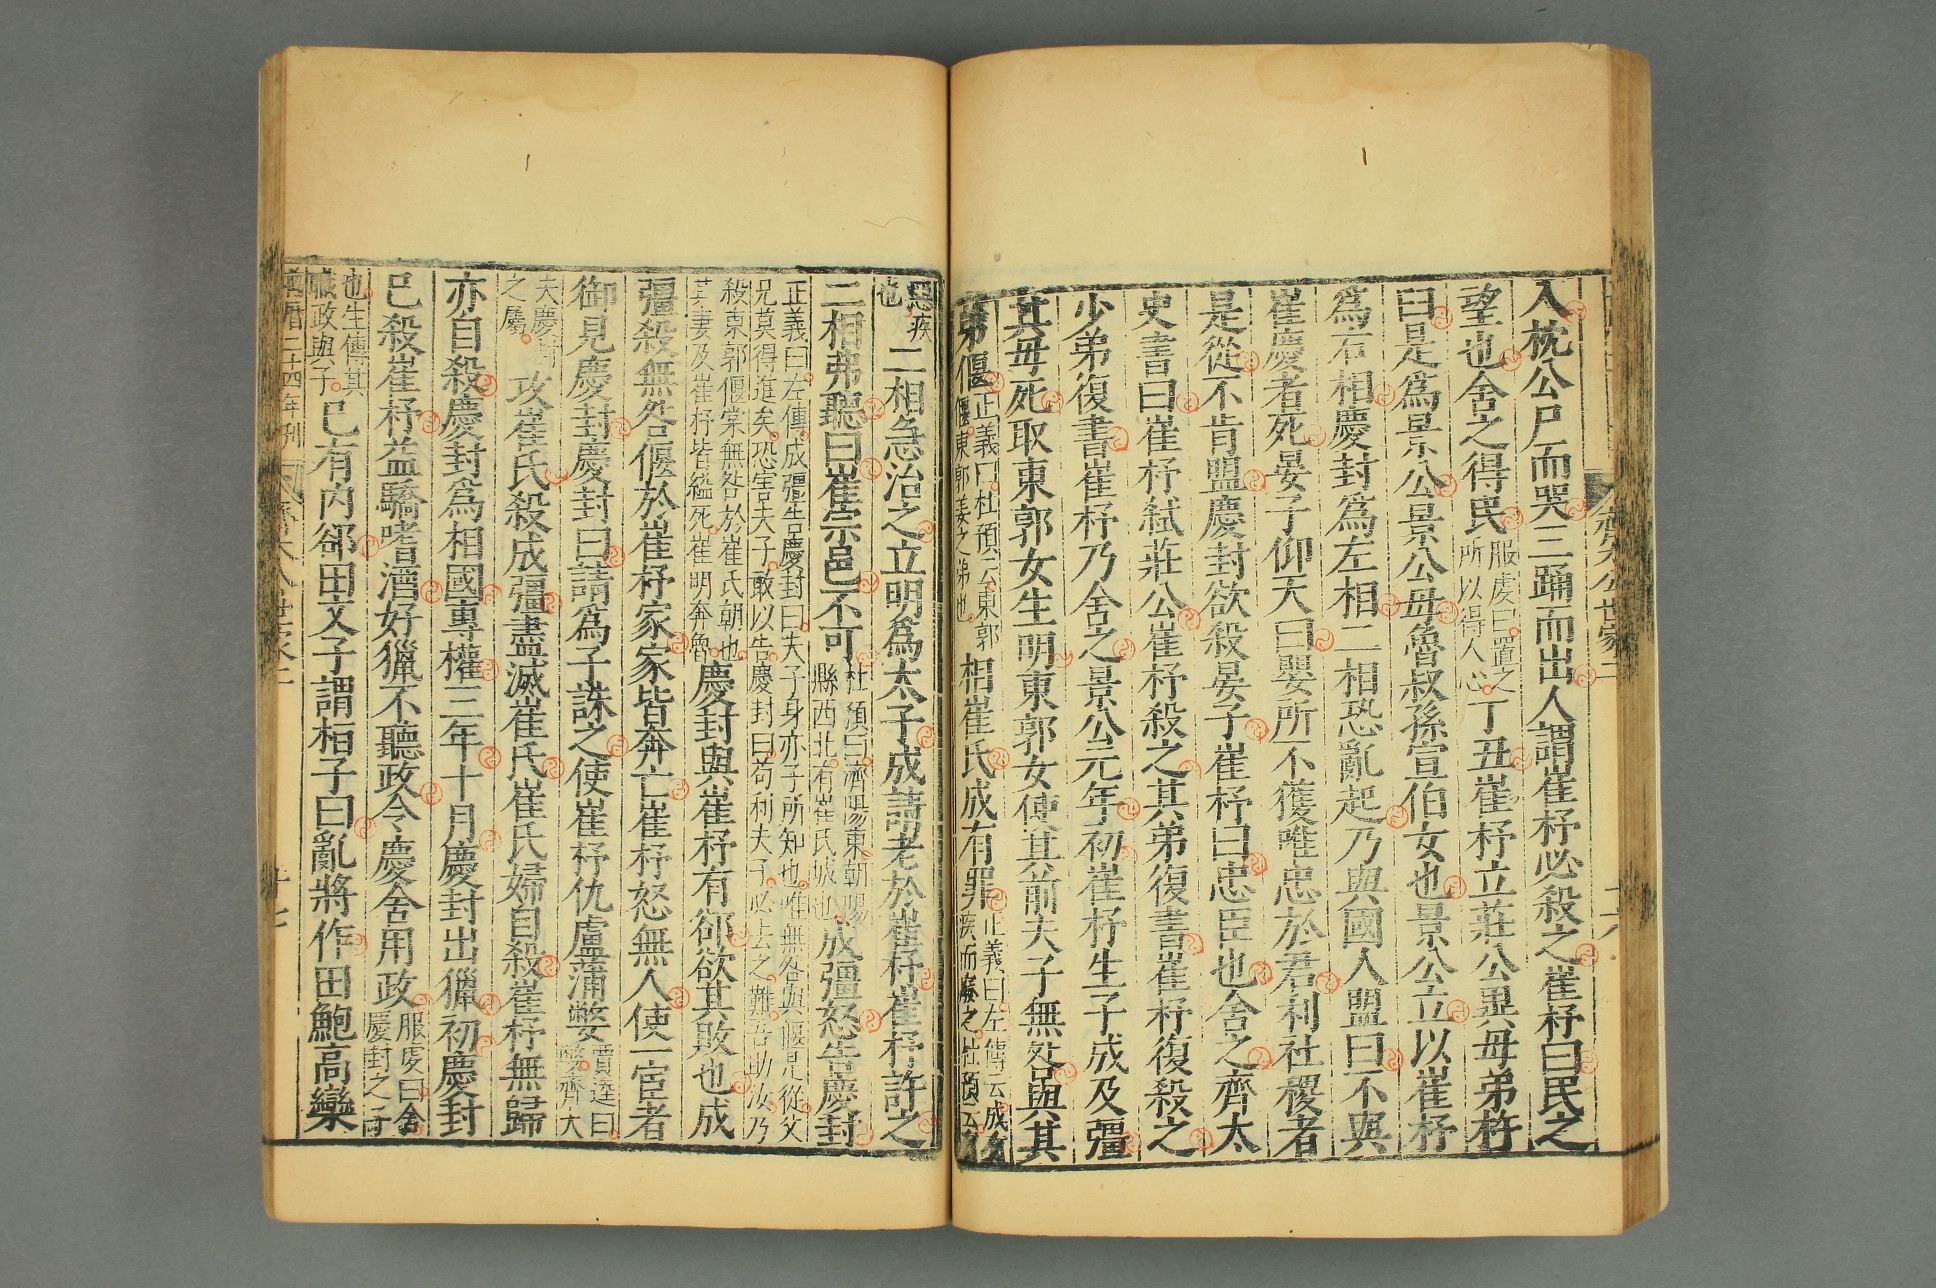 入枕公尸而哭三踊而出人謂崔杼必殺之崔杼曰民之
望也舍之得民服虔曰置之所以得人心丁丑崔杼立莊公異母弟杵
臼是爲景公景公母魯叔孫宣伯女也景公立以崔杼
爲右相慶封爲左相二相恐亂起乃與國人盟曰不與
崔慶者死晏子仰天曰嬰所不獲唯忠於君利社稷者
是從不肯盟慶封欲殺晏子崔杼曰忠臣也舍之齊太
史書曰崔杼弒莊公崔杼殺之其弟復書崔杼復殺之
少弟復書崔杼乃舍之景公元年初崔杼生子成及彊
其母死取東郭女生明東郭女使其前夫子無咎與其
弟偃正義曰杜預云東郭偃東郭姜之弟也相崔氏成有罪正義曰左傳云成有疾而廢之杜預云
惡疾也二相急治之立明爲太子成請老於崔杼崔杼許之
二相弗聽曰崔宗邑不可杜預曰濟陽東朝陽縣西北有崔氏城也成彊怒告慶封
正義曰左傳成彊告慶封曰夫子身亦子所知也唯無咎與偃是從父兄莫得進矣恐害夫子敢以告慶封曰苟利夫子必去之難吾助汝乃
殺東郭偃棠無咎於崔氏朝也其妻及崔杼皆縊死崔明奔魯慶封與崔杼有郤欲其敗也成
彊殺無咎偃於崔杼家家皆奔亡崔杼怒無人使一宦者
御見慶封慶封曰請爲子誅之使崔杼仇盧蒲嫳賈逵曰嫳齊大
夫慶封之屬攻崔氏殺成彊盡滅崔氏崔氏婦自殺崔杼無歸
亦自殺慶封爲相國專權三年十月慶封出獵初慶封
已殺崔杼益驕嗜酒好獵不聽政令慶舍用政服虔曰舍慶封之子
也生傳其職政與子已有內郤田文子謂桓子曰亂將作田鮑高欒